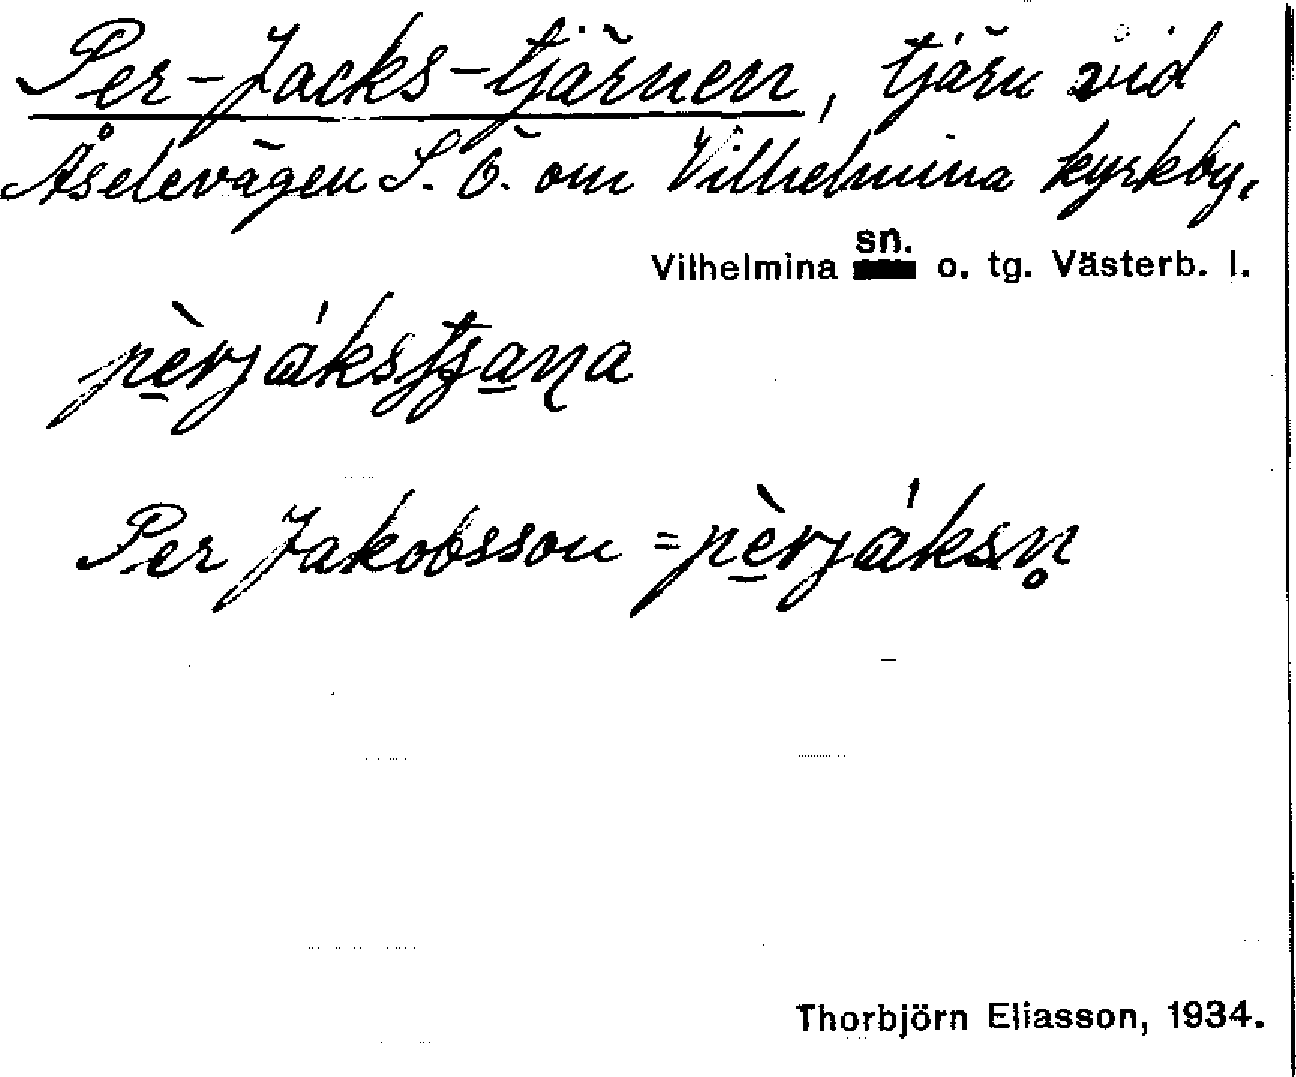 Per-Jacks-tjärnen, tjärn vid
Åselevägen S. Ö. om Vilhelmina kyrkby.
Vilhelmina sn. o. tg. Västerb. l.
Per Jakobsson = pèrjáksn̥
Thorbjörn Eliasson, 1934.